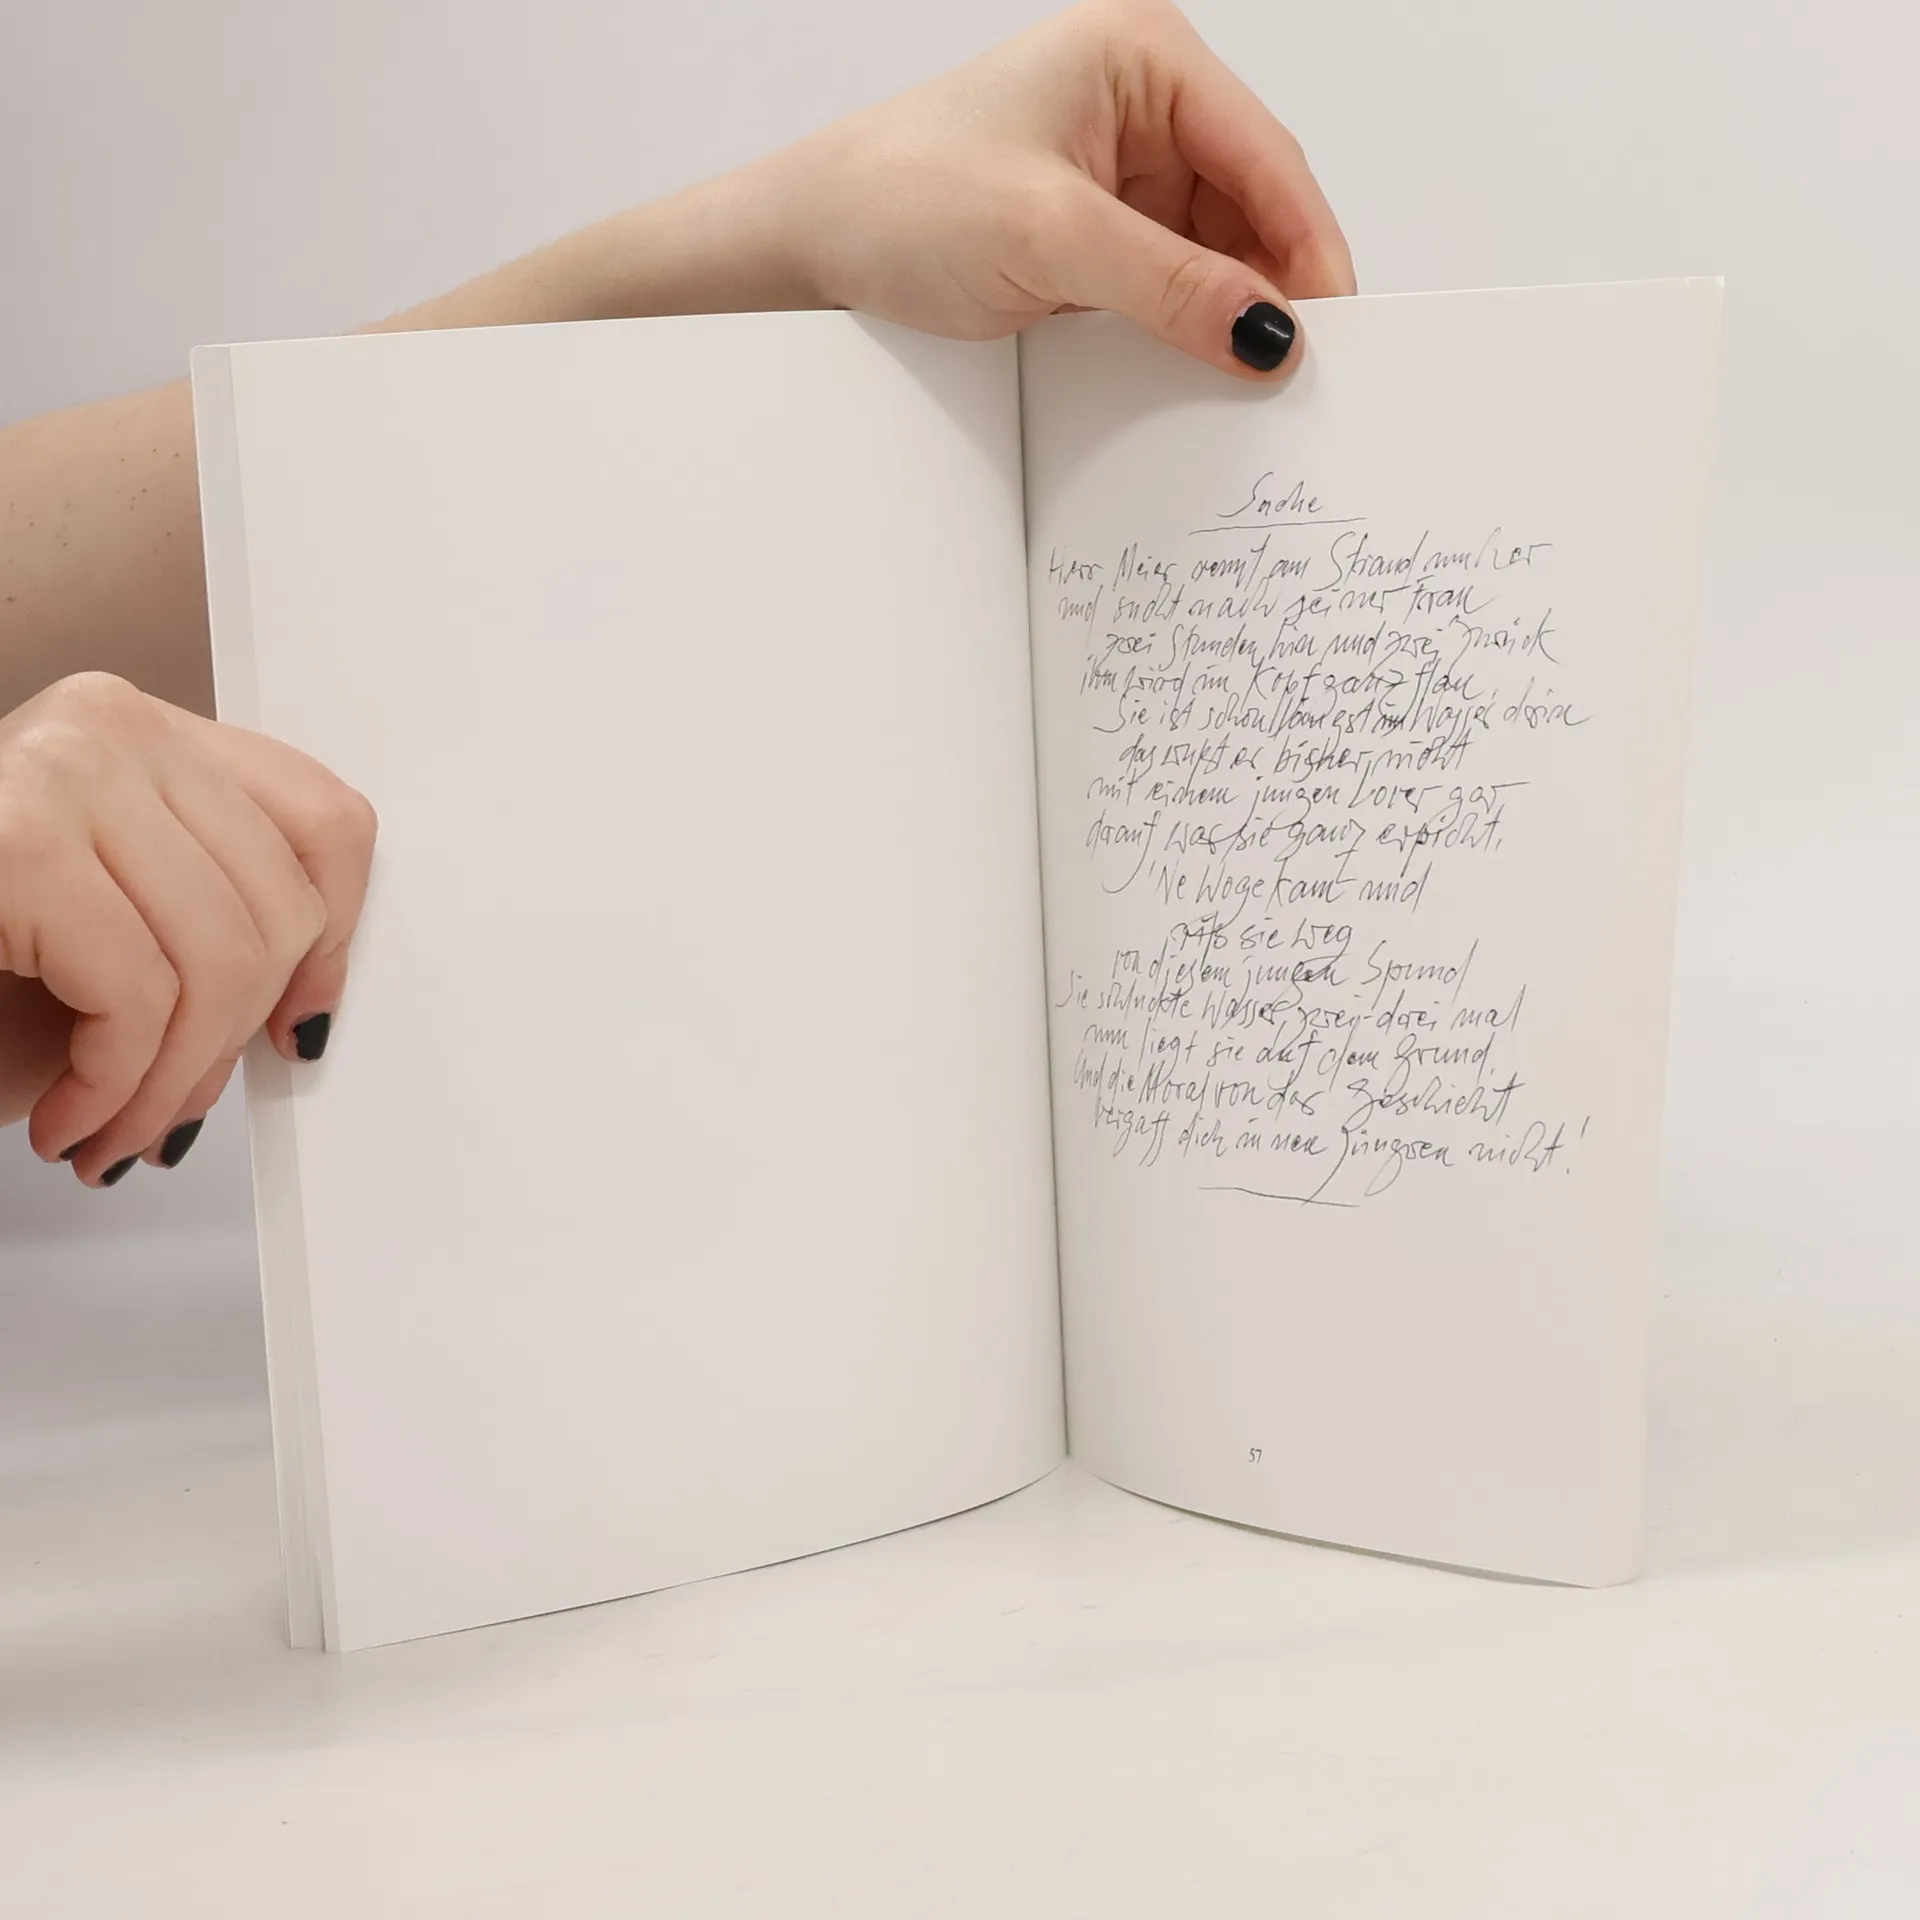 Suche
Herr Meier rennt am Strand umher
und sucht nach seiner Frau
zwei Stunden hin und zwei zurück
ihm wird im Kopf ganz flau.
Sie ist schon längst im Wasser drin
das wußt er bisher nicht
mit einem jungen Lover gar
darauf war sie ganz erpicht.
'Ne Woge kam und
riß sie weg
von diesem jungen Spund
Sie schluckte Wasser, zwei-drei mal
nun liegt sie auf dem Grund.
Und die Moral von der Geschicht
vergaff dich in nen Jüngren nicht!
57